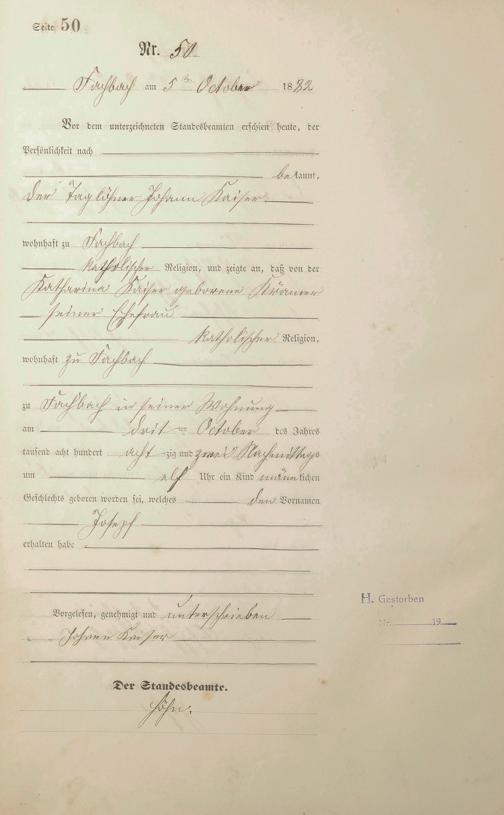 Seite 50
Nr. 50
Fachbach am 5ten October 1882
Vor dem unterzeichneten Standesbeamten erschien heute, der
Persönlichkeit nach
bekannt,
der Taglöhner Johann Kaiser
wohnhaft zu Fachbach
katholischer Religion, und zeigte an, daß von der
Katharina Kaiser geborene Krämer
seiner Ehefrau
katholischer Religion,
wohnhaft zu Fachbach
zu Fachbach in seiner Wohnung
am drit= October des Jahres
tausend acht hundert achtzig und zwei Nachmittags
um elf Uhr ein Kind männlichen
Geschlechts geboren worden sei, welches den Vornamen
Josepf
erhalten habe
Vorgelesen, genehmigt und unterschrieben
Johann Kaiser
Der Standesbeamte.
Höhn.
H. Gestorben
Nr. 19